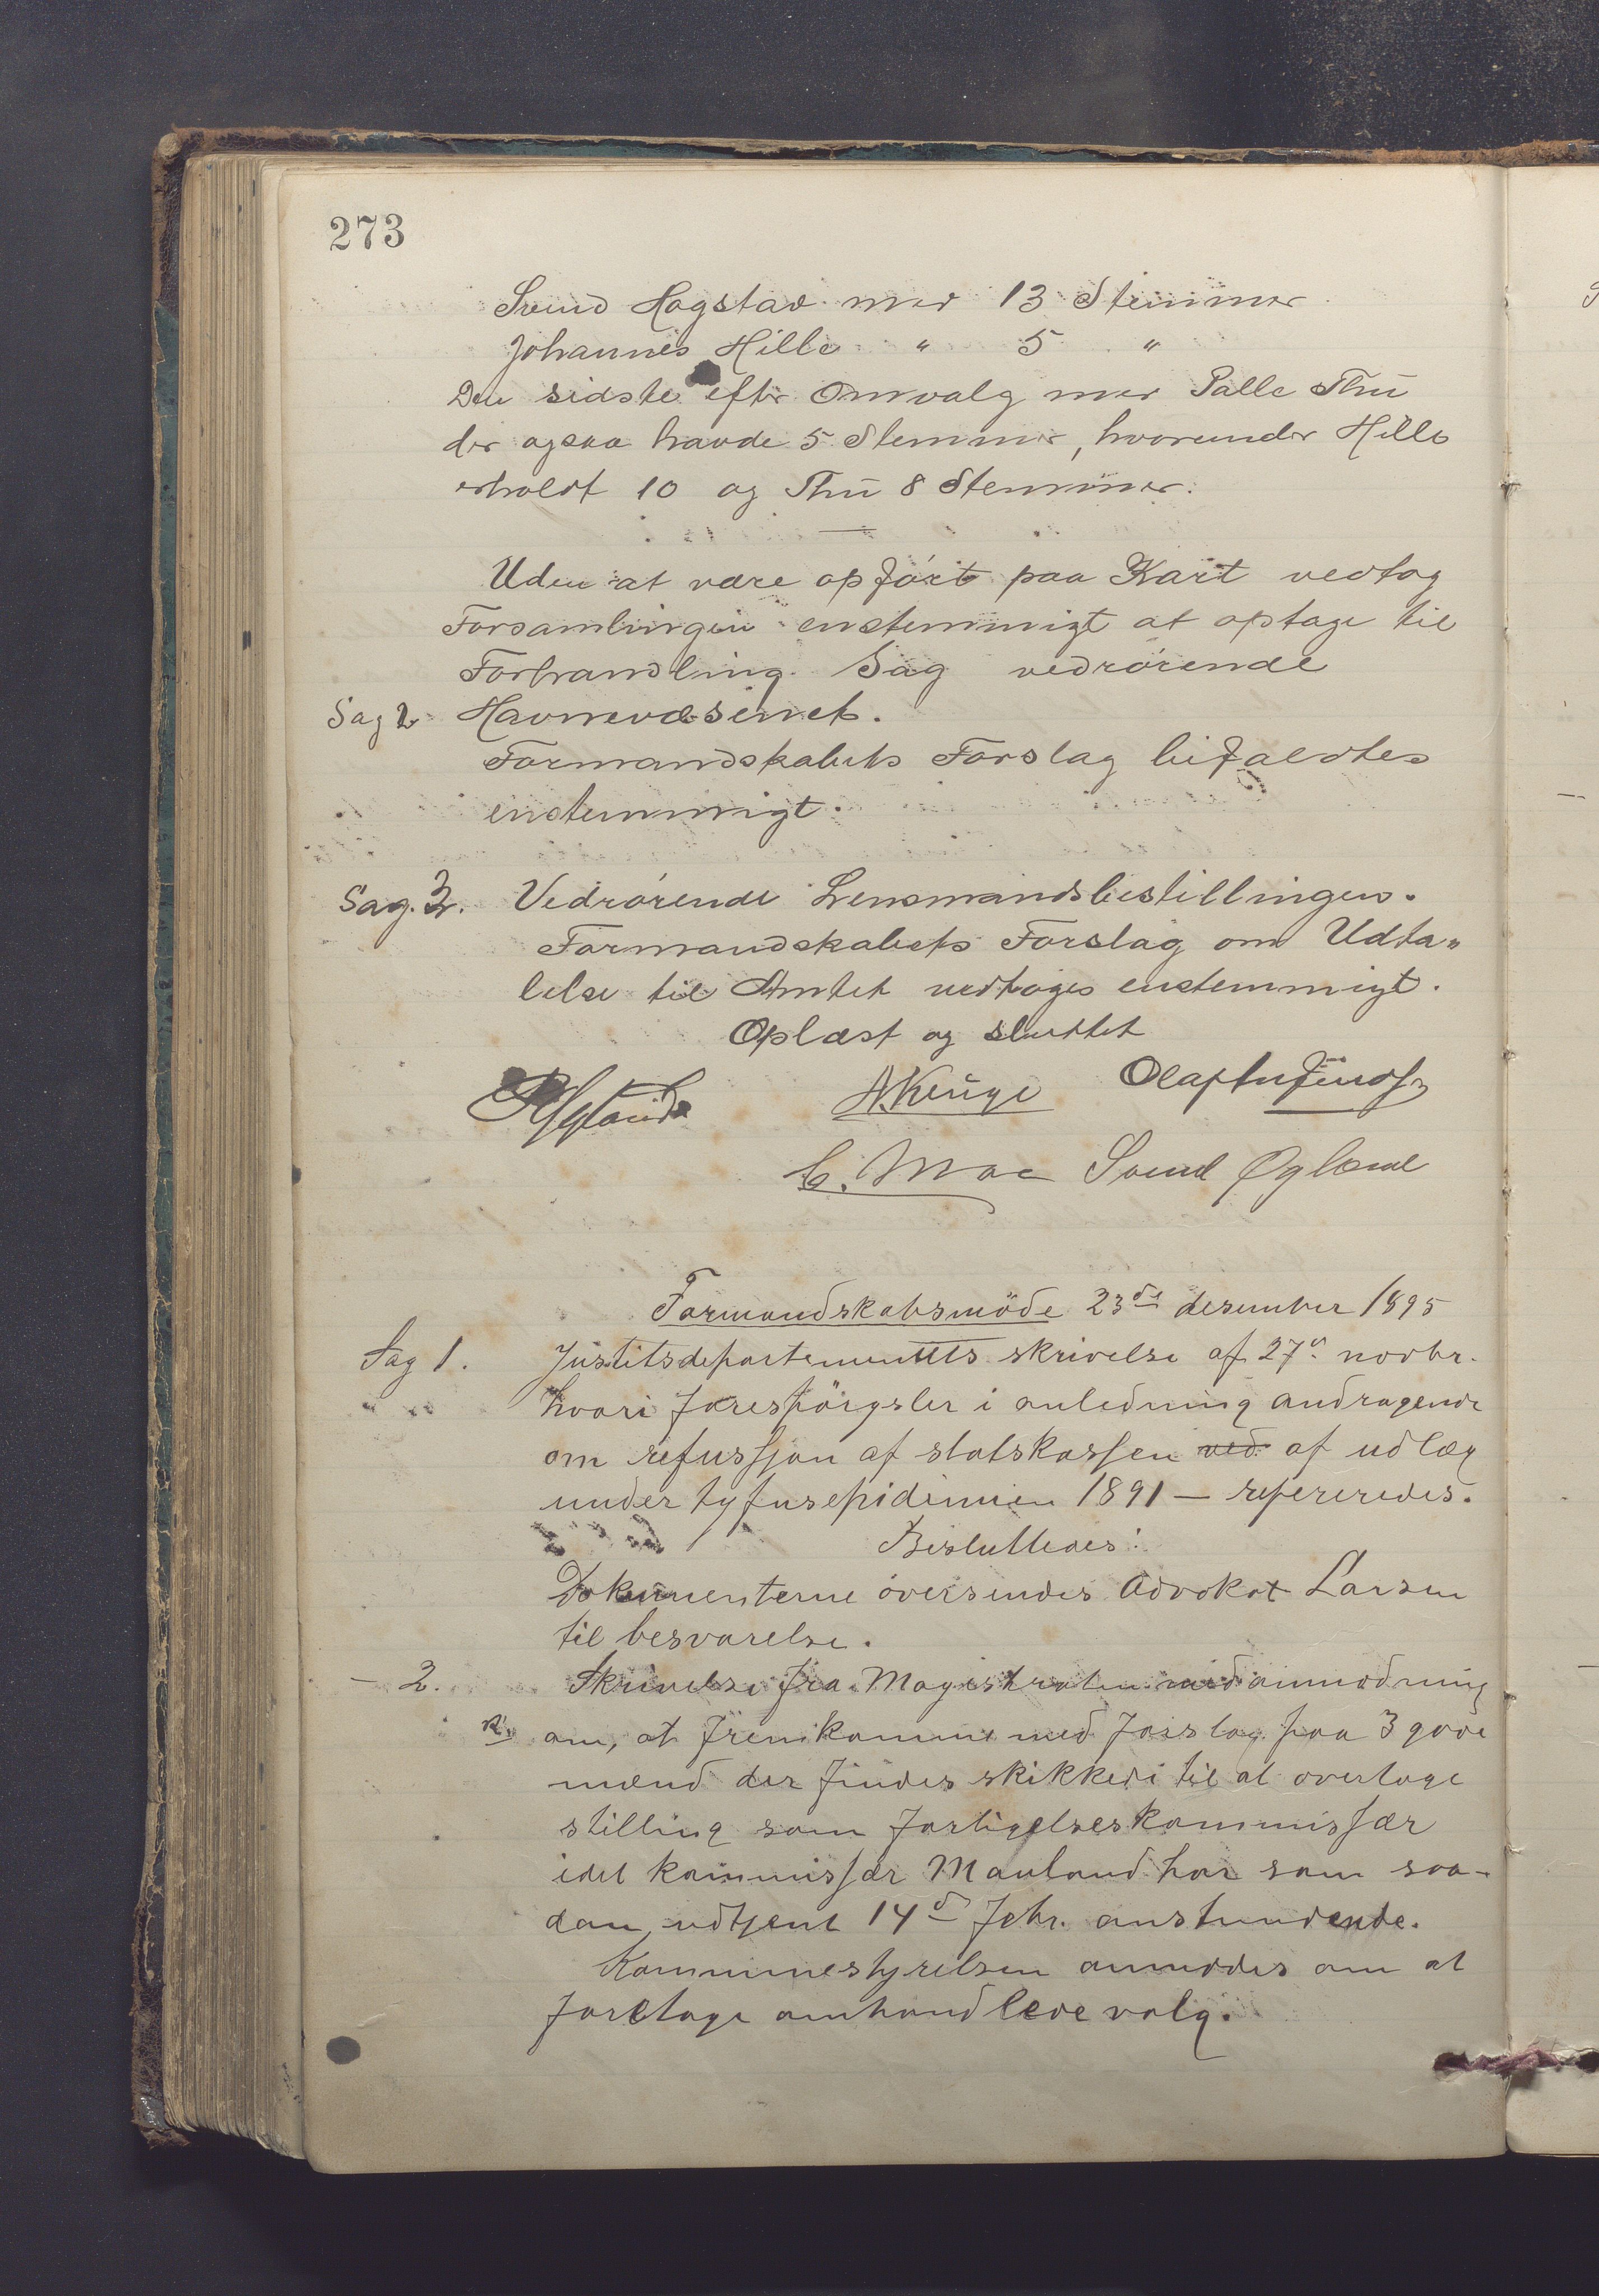 273
Svend Hogstad med 13 Stemmer
Johannes Hille " 5 "
Den sidste efter Omvalg med Palle Thu
der ogsaa havde 5 Stemmer, hvorunder Hille
erholdt 10 og Thu 8 Stemmer.
Uden at være opført paa Kart vedtog
Forsamlingen enstemmigt at optage til
Forhandling Sag vedrørende
Sag 2 Havnevæsenet.
Formandskabets Forslag bifaldtes
enstemmigt.
Sag. 3. Vedrørende Lensmandsbestillingen.
Formandskabets Forslag om Udta„
lelse til Amtet vedtoges enstemmigt.
Oplæst og sluttet
A. Kenge
C. Moe Svend Øglænd
Formandskabsmöde 23de desember 1895
Sag 1. Justitsdepartementets skrivelse af 27de novbr.
hvori forespörgsler i anledning andragende
om refussjon af statskassen ved af udlæg
under tyfusepidemien 1891 — refereredes.
Besluttedes:
Dokumenterne oversendes Advokat Larsen
til besvarelse.
— 2. Skrivelse fra Magistraten med anmodning
om, at fremkomme med forslag paa 3 gode
mænd der findes skikkedi til at overtage
stilling som forligelseskommissær
idet kommissær Mauland har som saa-
dan udtjent 14de febr. anstundende.
Kommunestyrelsen anmodes om at
foretage omhandlede valg.